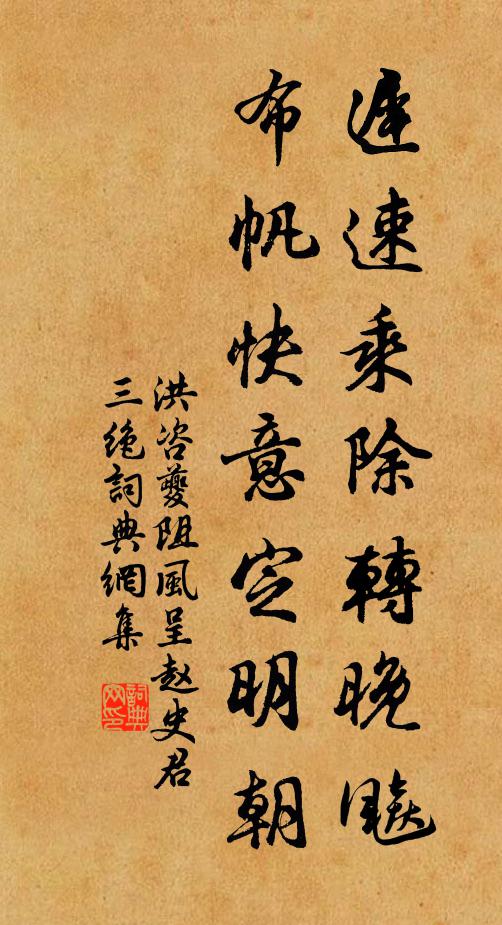 遲速乘除轉晚飈
布帆快意定明朝
洪咨夔阻風呈赵史君
三绝詞典網集
詞典网印